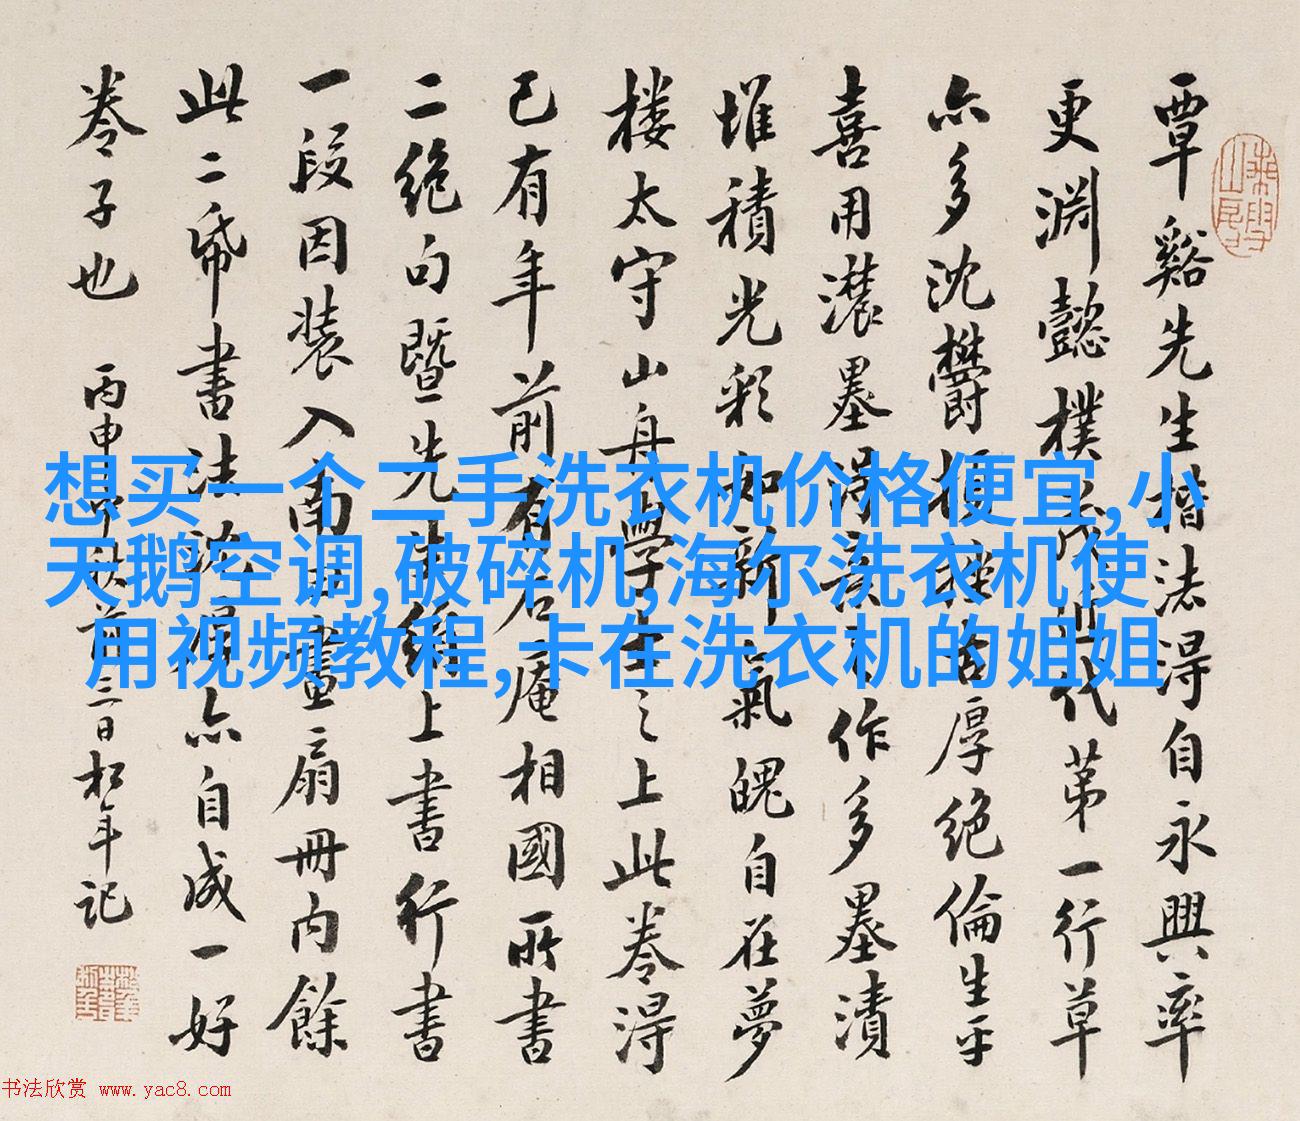 覃谿先生楷法得自永興率
更淵懿樸茂代第一行草
亦多沈欝頓厚絕倫生平
喜用濃墨得作多墨漬
堆積光彩如新氣魄自在夢
楼太守山舟學士之上此卷得
已有年前有石庵相國所書
二絕句暨先生上書行書
一段因装入南田畫扇冊内餘
此二帋書法亦自成一好
卷子也 丙申中秋前三日松年記
想买一个二手洗衣机价格便宜,小
天鹅空调,破碎机,海尔洗衣机使
用视频教程,卡在洗衣机的姐姐
书法欣赏 www.yac8.com